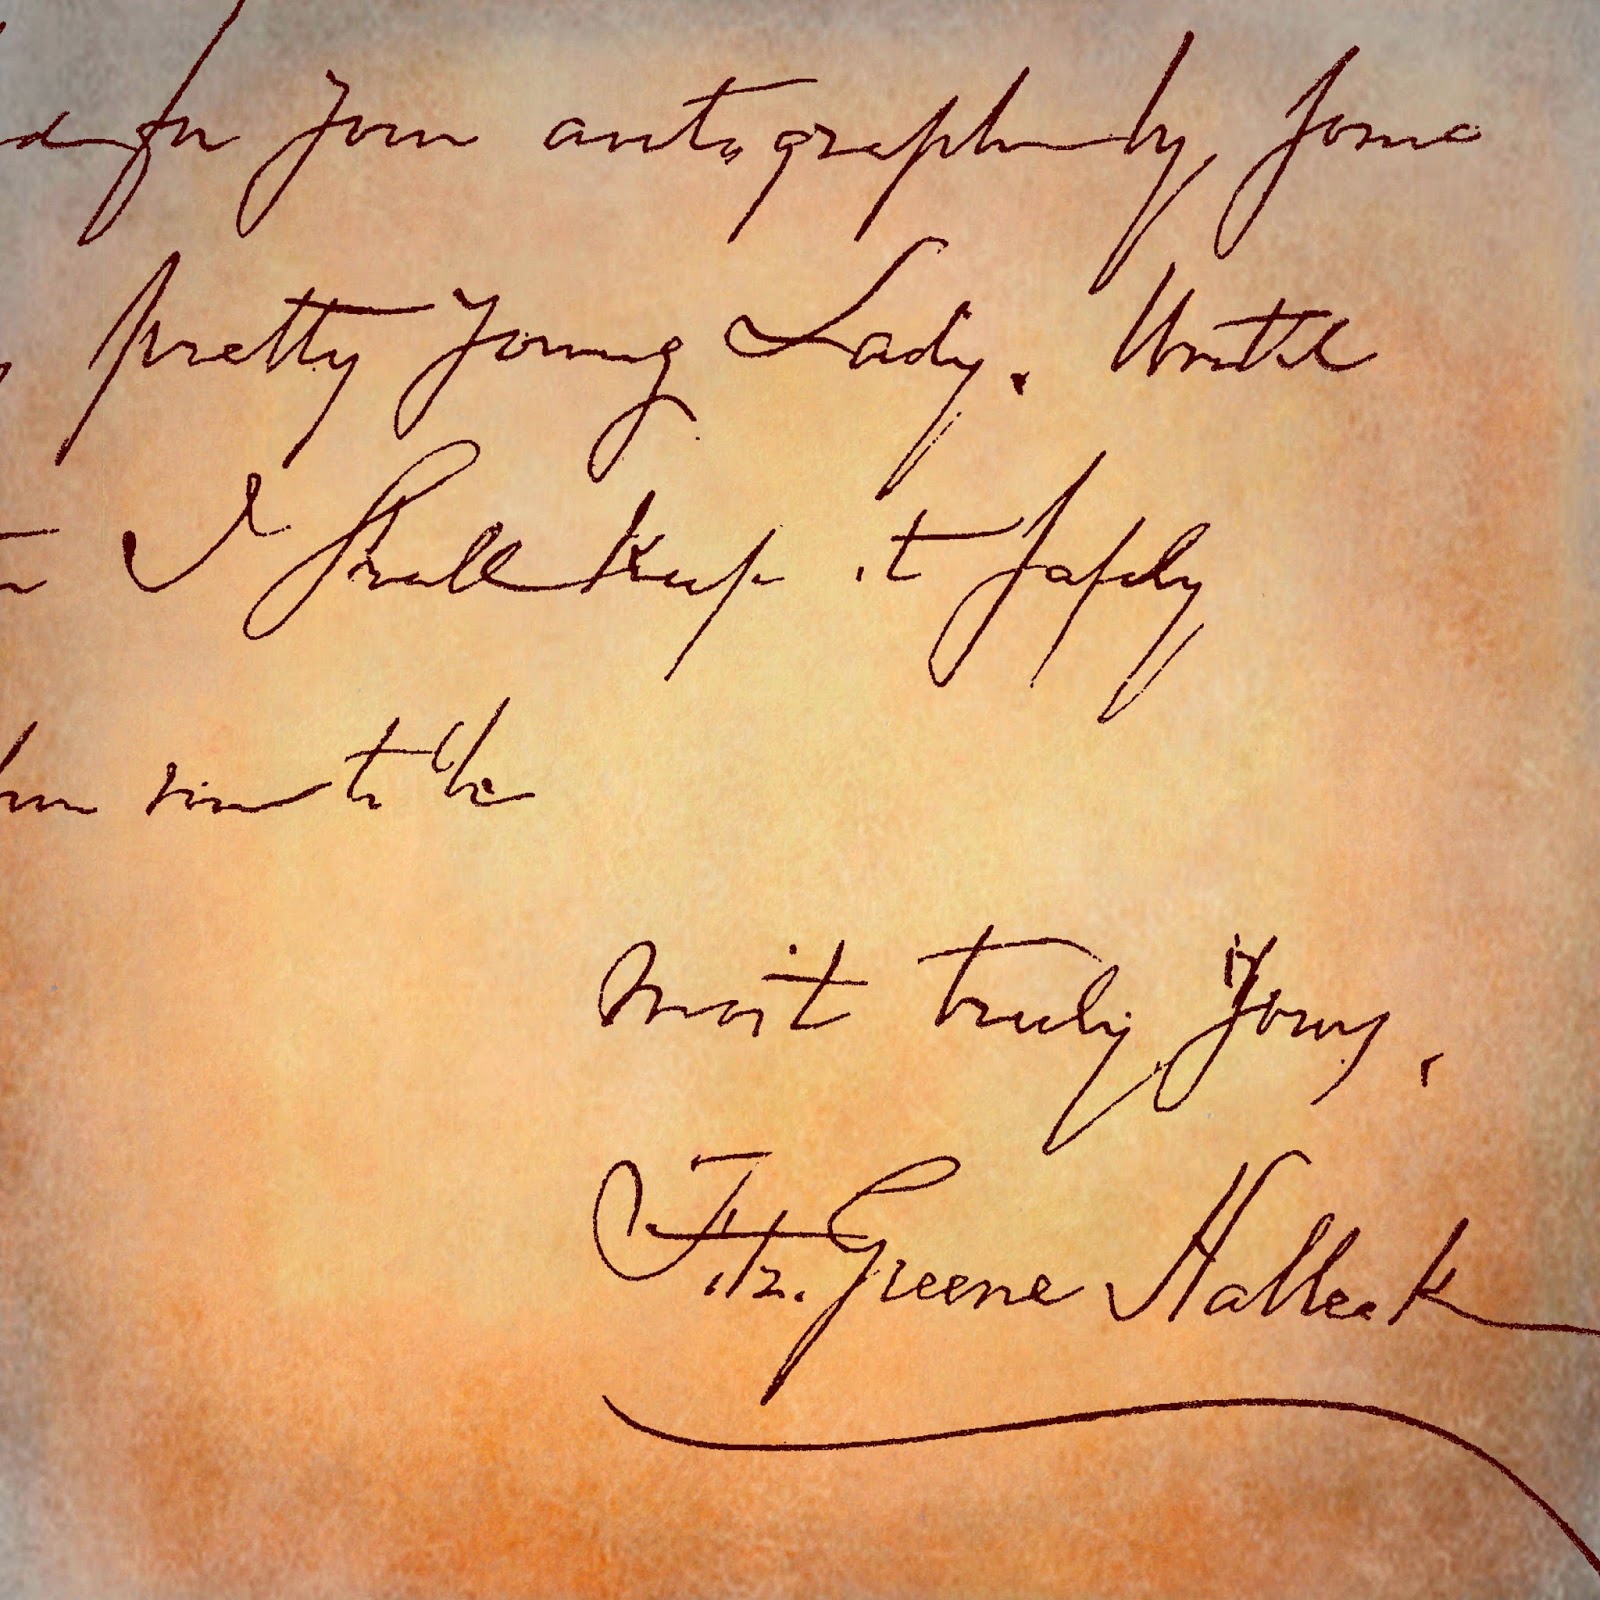 for your autograph by some
pretty young Lady. Until
I shall keep it safely
to be
most truly yours,
Fitz-Greene Halleck